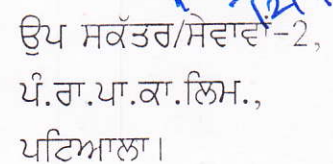 ਉਪ ਸਕੱਤਰ/ਸੇਵਾਵਾਂ-2,
ਪੰ.ਰਾ.ਪਾ.ਕਾ.ਲਿਮ.,
ਪਟਿਆਲਾ।